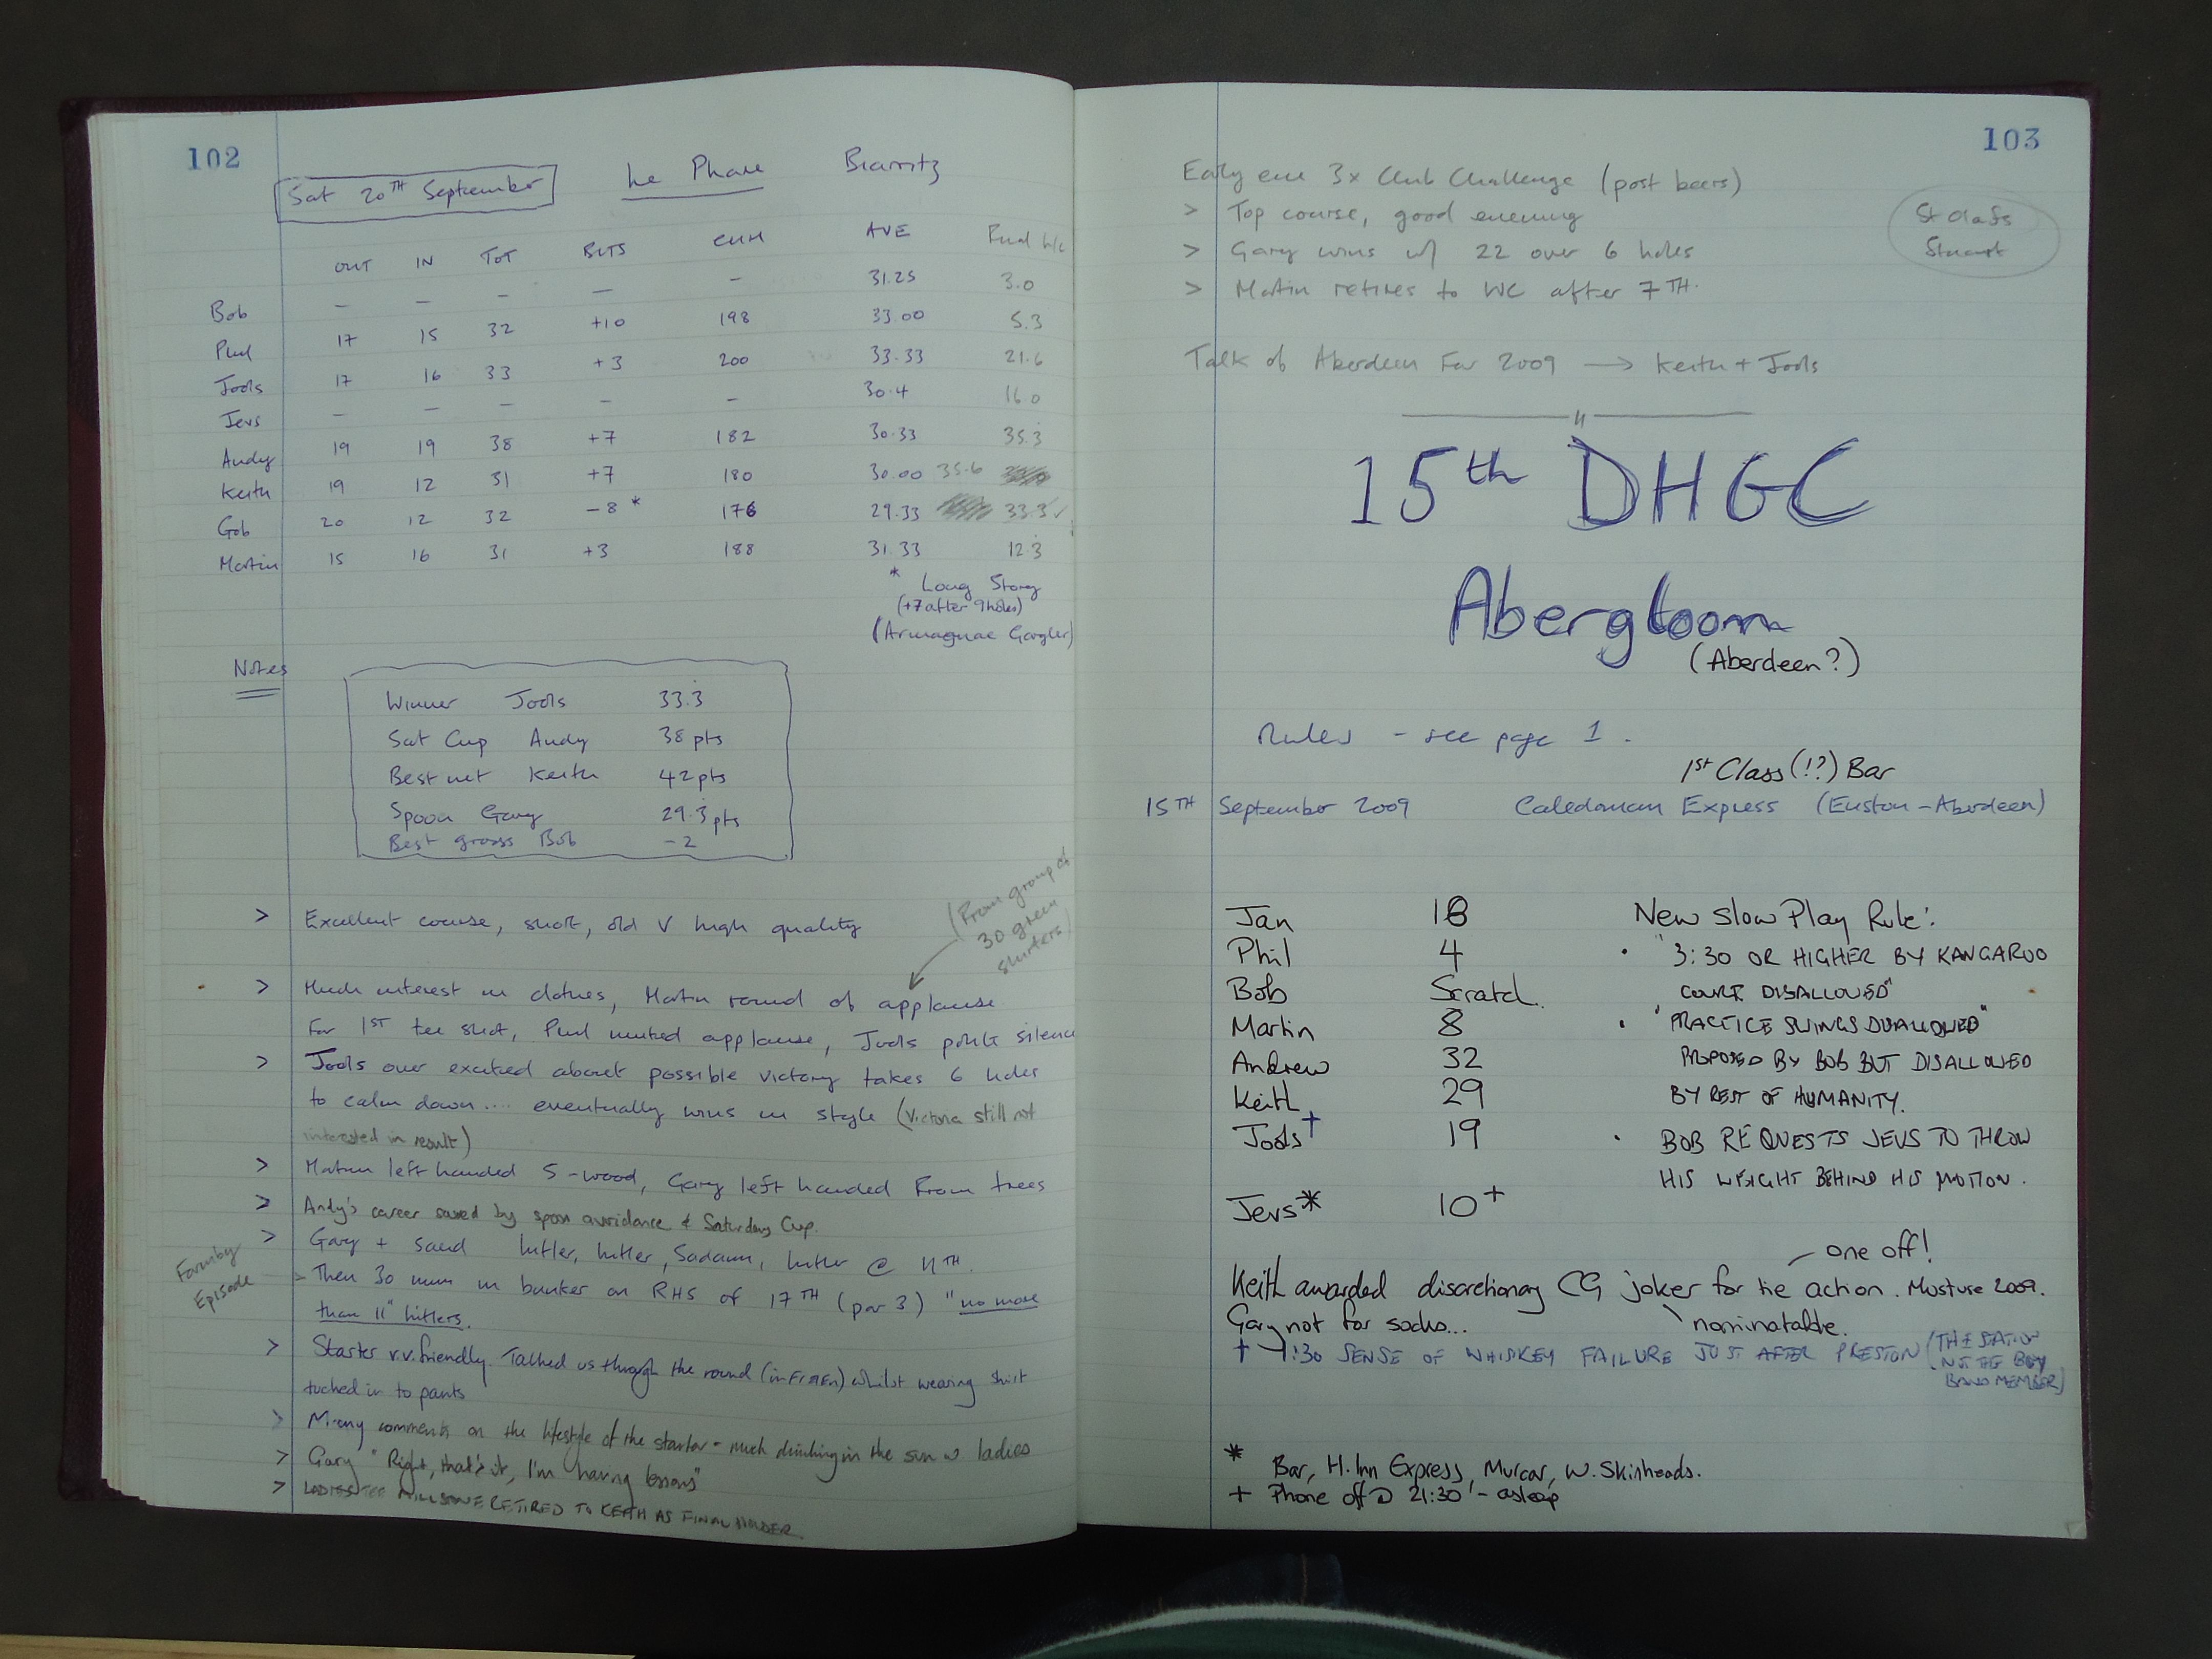 102
Sat 20TH September Le Phare Biarritz
OUT IN TOT BITS CUM AVE Final h/c
Bob – – – – – 31.25 3.0
Phil 17 15 32 +10 198 33.00 5.3
Jools 17 16 33 +3 200 33.33 21.6
Jevs – – – – – 30.4 16.0
Andy 19 19 38 +7 182 30.33 35.3
Keith 19 12 31 +7 180 30.00 35.6
Gob 20 12 32 -8 * 176 29.33 33.3 ✓
Martin 15 16 31 +3 188 31.33 12.3
* Long Story
(+7 after 9 holes)
(Armagnac Gargler)
Notes
Winner Jools 33.3
Sat Cup Andy 38 pts
Best net Keith 42 pts
Spoon Gary 29.3 pts
Best gross Bob -2
(From group of
30 green
shirters)
> Excellent course, short, old v high quality
> Much interest in clothes, Martin round of applause
for 1ST tee shot, Phil muted applause, Jools polite silence
> Jools over excited about possible victory takes 6 holes
to calm down.... eventually wins in style (Victoria still not
interested in result)
> Martin left handed 5-wood, Gary left handed from trees
> Andy's career saved by spoon avoidance & Saturday Cup.
> Gary + sand hitler, hitler, Sadam, hitler @ 11TH.
Formby
Episode
> Then 30 mins in bunker on RHS of 17TH (par 3) "no more
than 11" hitlers.
> Starter v.v. friendly. Talked us through the round (in French) whilst wearing shirt
tucked in to pants
> Many comments on the lifestyle of the starter - much drinking in the sun w ladies
> Gary "Right, that's it, I'm having lessons"
> LADIES TEE MILLSTONE RETIRED TO KEITH AS FINAL HOLDER.
103
Early eve 3x Club Challenge (post beers)
> Top course, good evening
> Gary wins w/ 22 over 6 holes
> Martin retires to WC after 7TH.
St Olafs
Stewart
Talk of Aberdeen For 2009 → Keith + Jools
15th DHGC
Abergloom
(Aberdeen?)
Rules - see page 1.
1st Class (!?) Bar
15TH September 2009 Caledonian Express (Euston-Aberdeen)
Jan 18 New Slow Play Rule:
Phil 4 · "3:30 OR HIGHER BY KANGAROO
Bob Scratch. COURT DISALLOWED"
Martin 8 · "PRACTICE SWINGS DISALLOWED"
Andrew 32 PROPOSED BY BOB BUT DISALLOWED
Keith 29 BY REST OF HUMANITY.
Jools† 19 · BOB REQUESTS JEVS TO THROW
HIS WEIGHT BEHIND HIS MOTION.
Jevs* 10+
one off!
Keith awarded discretionary CG joker for tie action. Must use 2009.
Gary not for socks... nominatable.
† 1:30 SENSE OF WHISKEY FAILURE JUST AFTER PRESTON (THE STATION
NOT THE BOY
BAND MEMBER)
* Bar, H. Inn Express, Murcar, W. Skinheads.
+ Phone off @ 21:30 - asleep